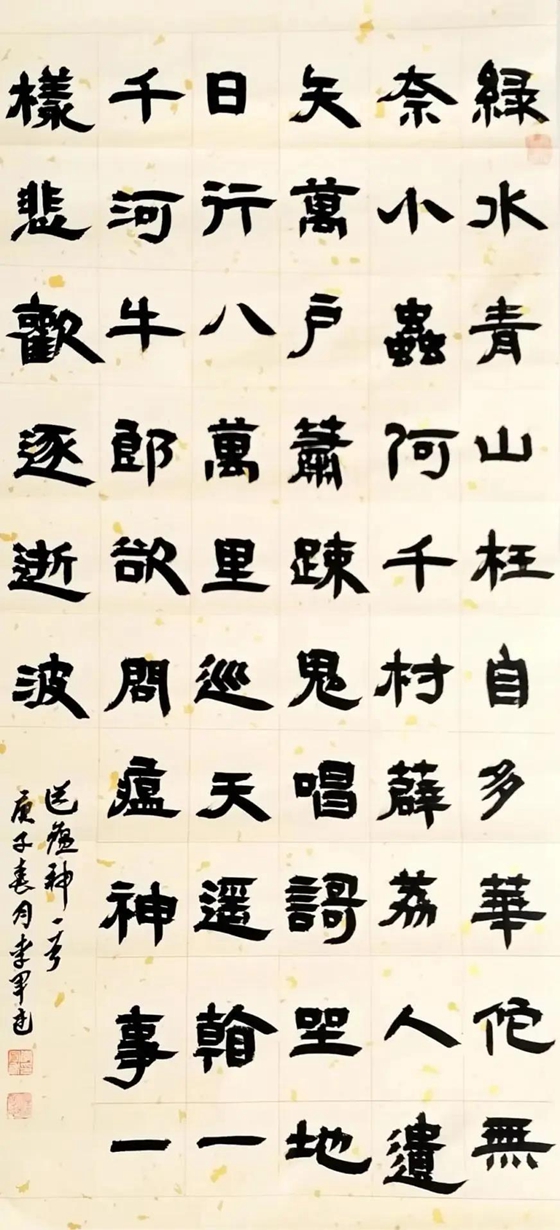 綠水青山枉自多華佗無
奈小蟲何千村薜荔人遺
矢萬戶蕭踈鬼唱謌坐地
日行八萬里巡天遥看一
千河牛郎欲問瘟神事一
樣悲歡逐逝波
送瘟神一首
庚子春月李